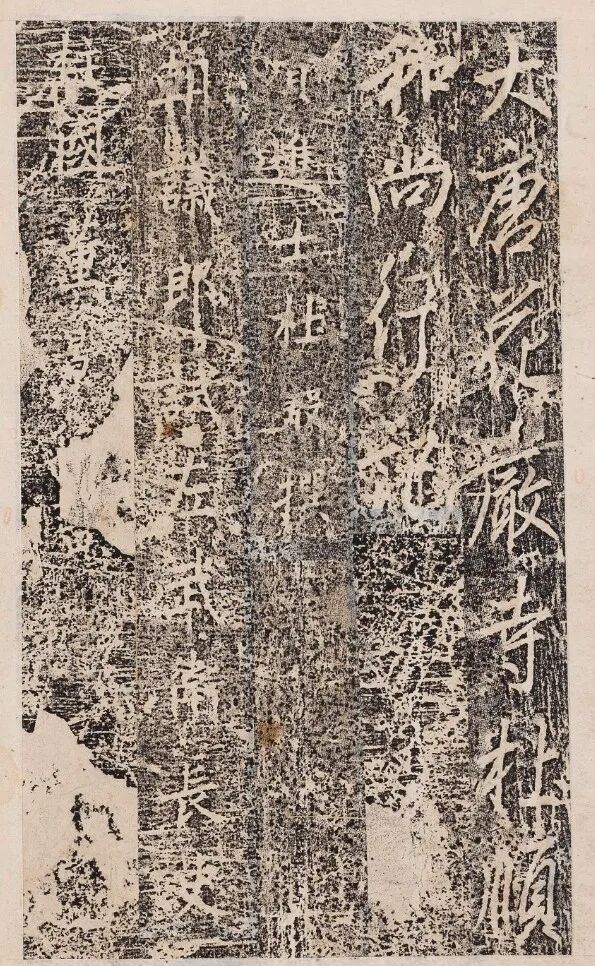 大唐花嚴寺杜順
和尚行記
貢進士杜殷撰
朝議郎試左武衛長史
柱國董